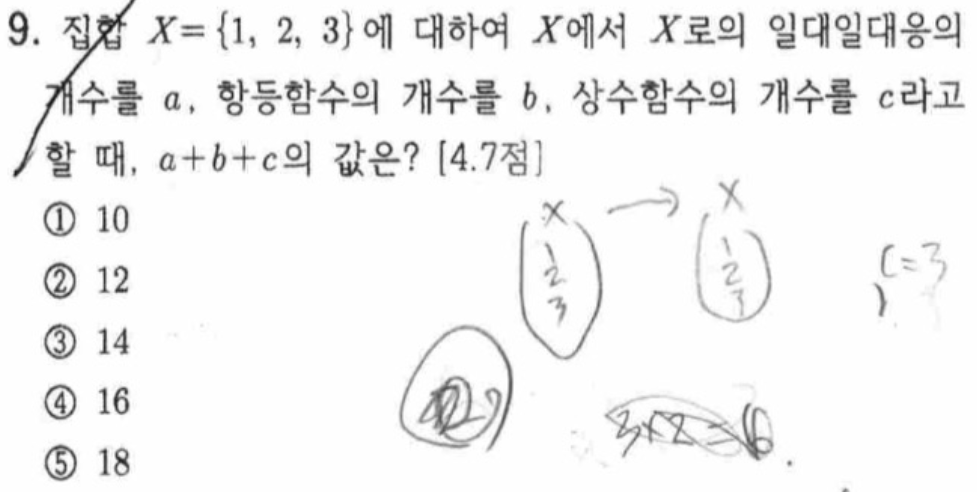 9. 집합 X={1, 2, 3}에 대하여 X에서 X로의 일대일대응의
개수를 a, 항등함수의 개수를 b, 상수함수의 개수를 c라고
할 때, a+b+c의 값은? [4.7점]
① 10
② 12
③ 14
④ 16
⑤ 18
X → X
1 1
2 2
3 3
c=3
3×2=6